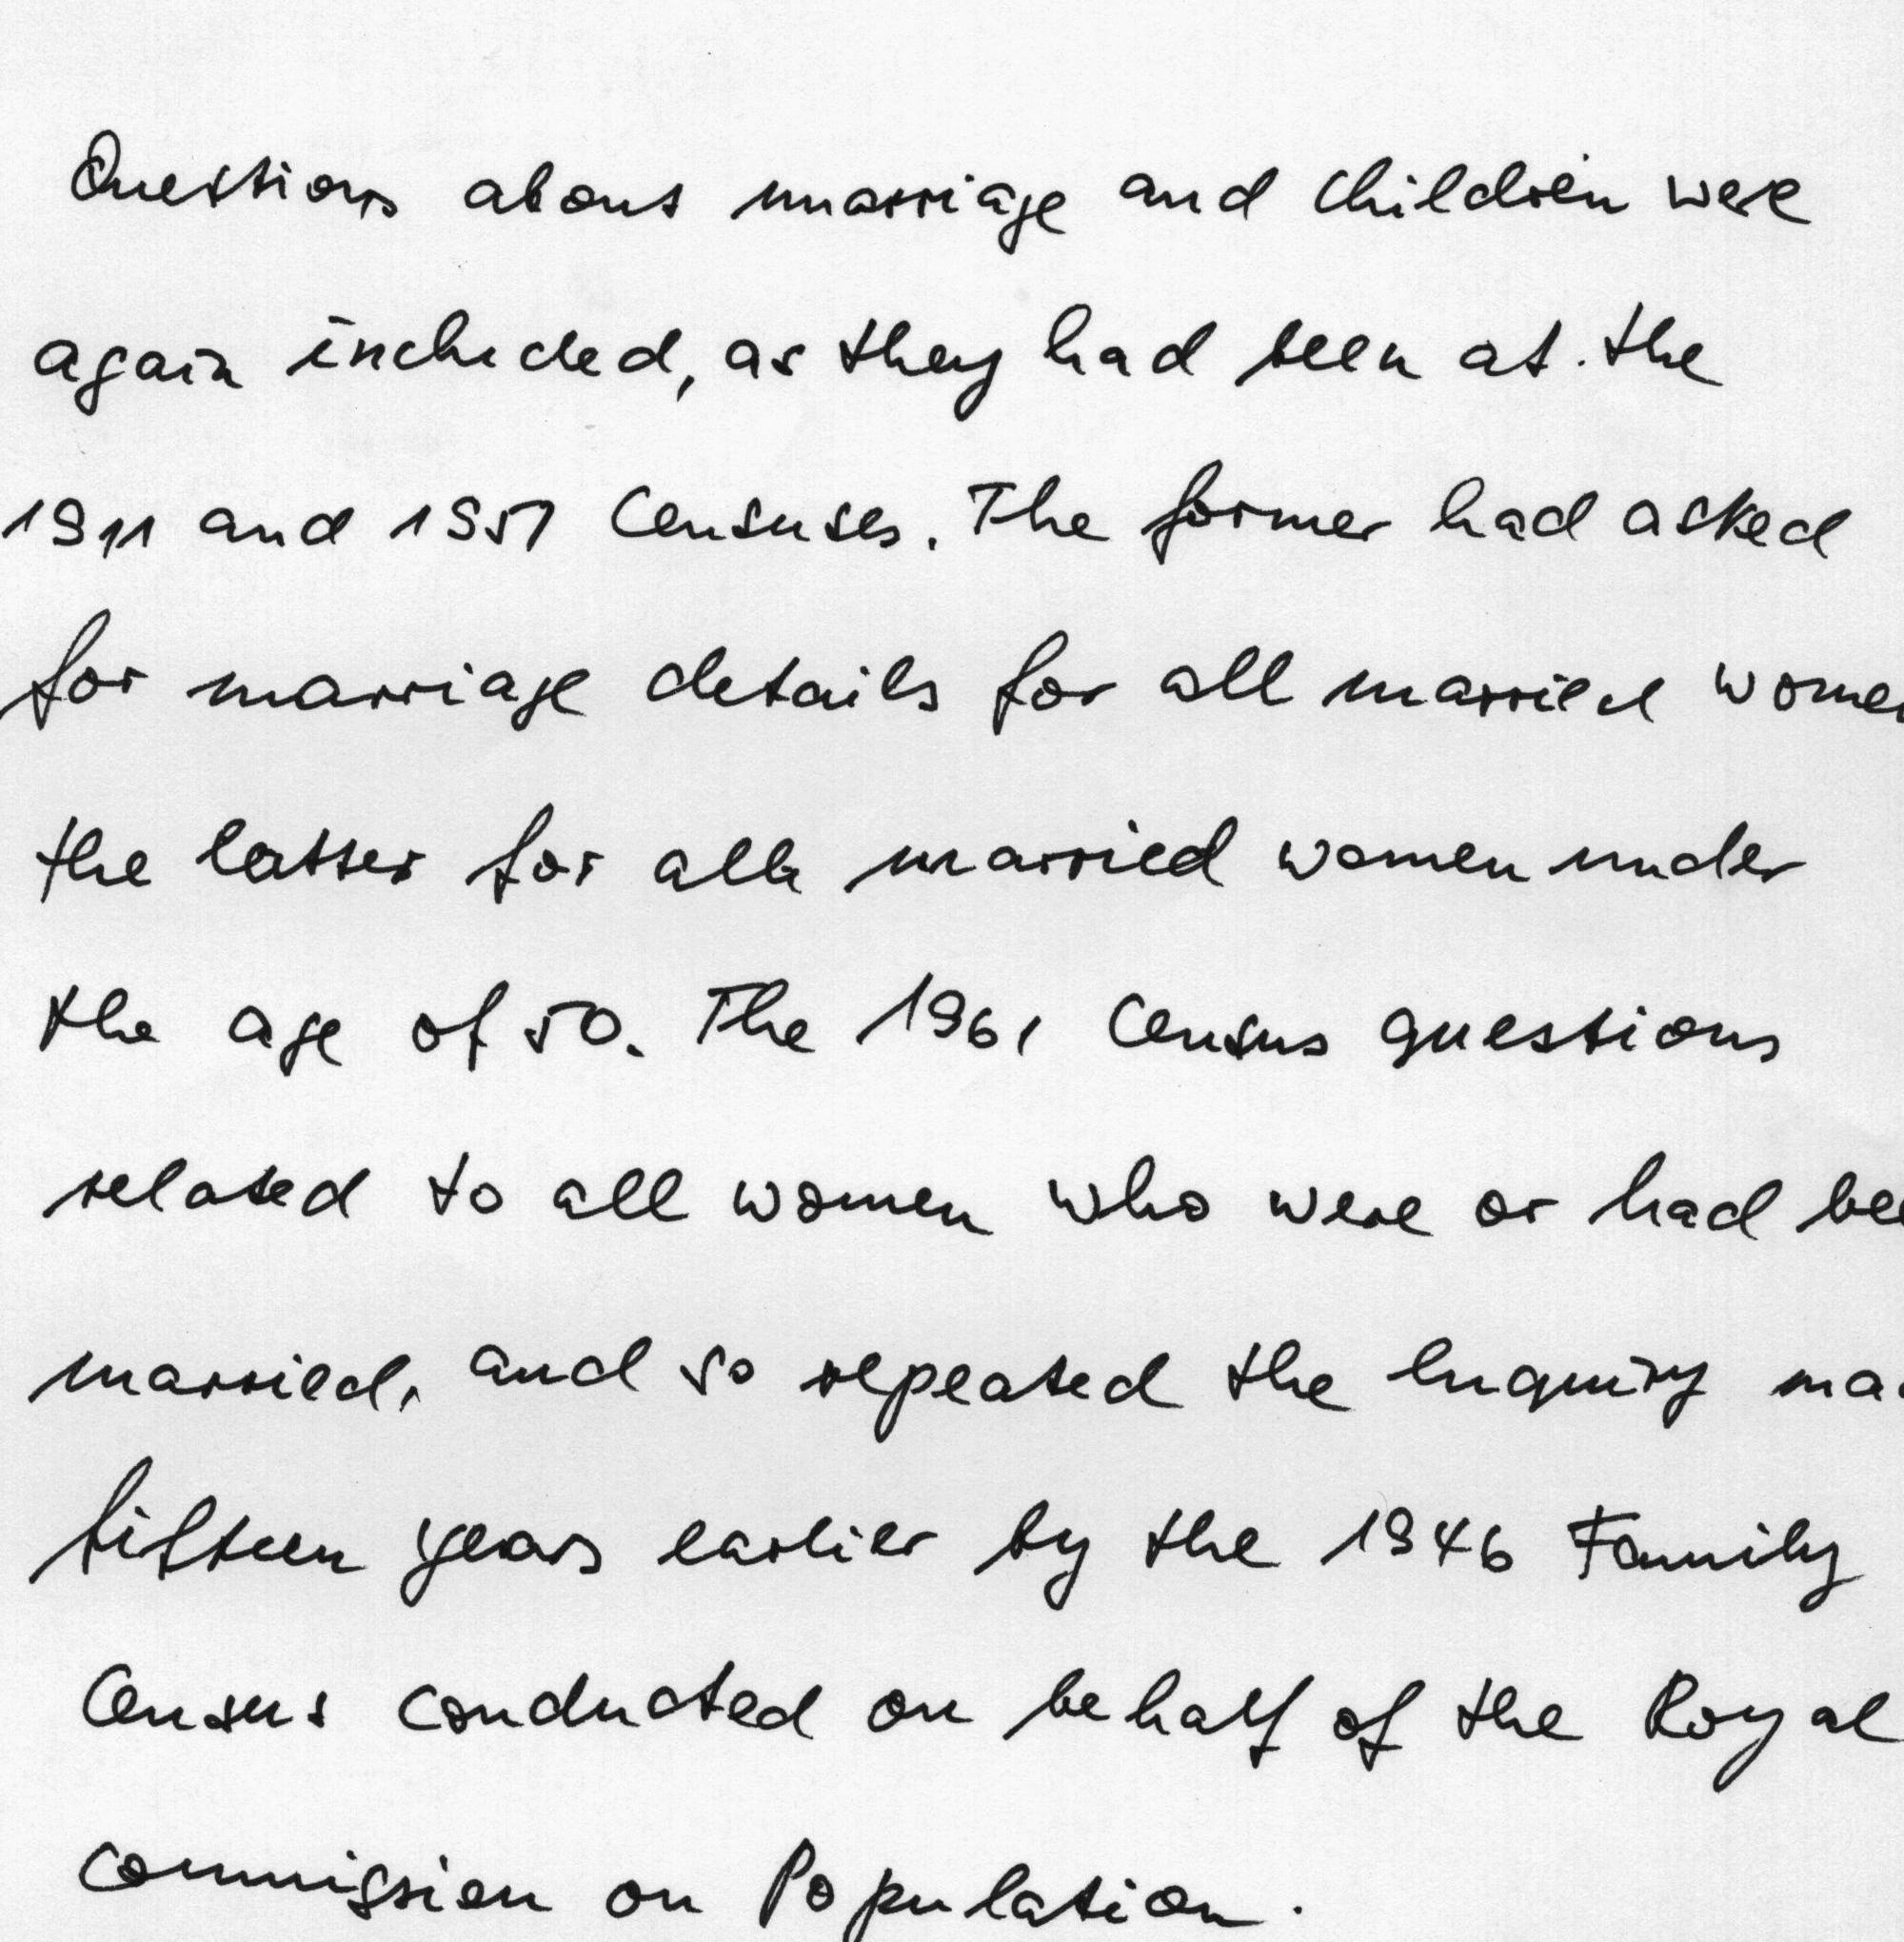 Questions about marriage and children were
again included, as they had been at the
1911 and 1951 Censuses. The former had asked
for marriage details for all married women
the latter for all married women under
the age of 50. The 1961 Census questions
related to all women who were or had bee
married, and so repeated the Inquiry ma
fifteen years earlier by the 1946 Family
Census conducted on behalf of the Royal
Commission on Population.